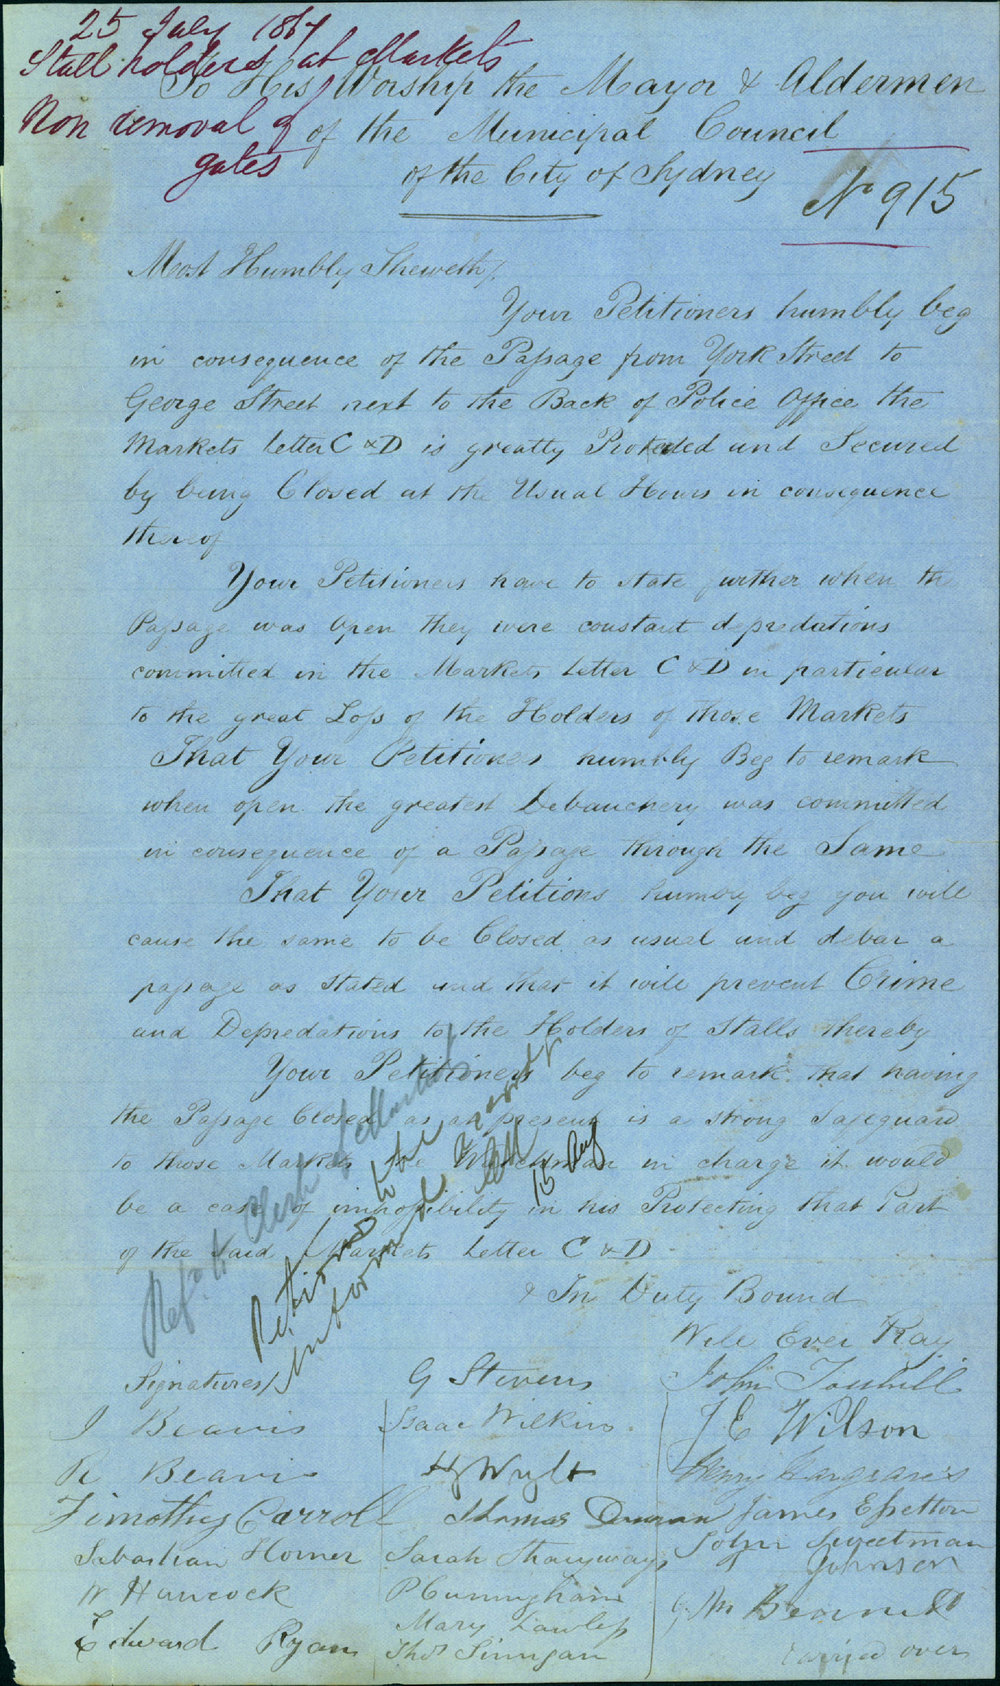 25 July 1867
Stall holders at Markets
Non removal of
gates
To His Worship the Mayor & Aldermen
of the Municipal Council
of the City of Sydney
No 915
Most Humbly Sheweth/
Your Petitioners humbly beg
in consequence of the Passage from York Street to
George Street next to the Back of Police Office the
Markets Letter C & D is greatly Protected and Secured
by being Closed at the Usual Hours in consequence
thereof
Your Petitioners have to state further when the
Passage was open they were constant depredations
committed in the Markets Letter C & D in particular
to the great Loss of the Holders of those Markets
That Your Petitioners humbly Beg to remark
when open the greatest Debauchery was committed
in consequence of a Passage through the Same
That Your Petitions humbly beg you will
cause the same to be Closed as usual and debar a
passage as stated and that it will prevent Crime
and Depredations to the Holders of Stalls thereby
Your Petitioners beg to remark that having
the Passage Closed as at present is a strong safeguard
to those Markets the Watchman in charge it would
be a case of impossibility in his Protecting that Part
of the said Markets Letter C & D
& In Duty Bound
Will Ever Pray
Refd to Clerk of Markets
Petitioners
informed
15 Aug
Signatures/
J Beavis
R Beavis
Timothy Carroll
Sebastian Horner
W Hancock
Edward Ryan
G Stevens
Isaac Wilkins
Thomas Duncan
Sarah
P Cunningham
Mary Lawless
Thos Finngan
John Toohill
J E Wilson
Henry Hargraves
James
John Sweetman
Johnson
carried over